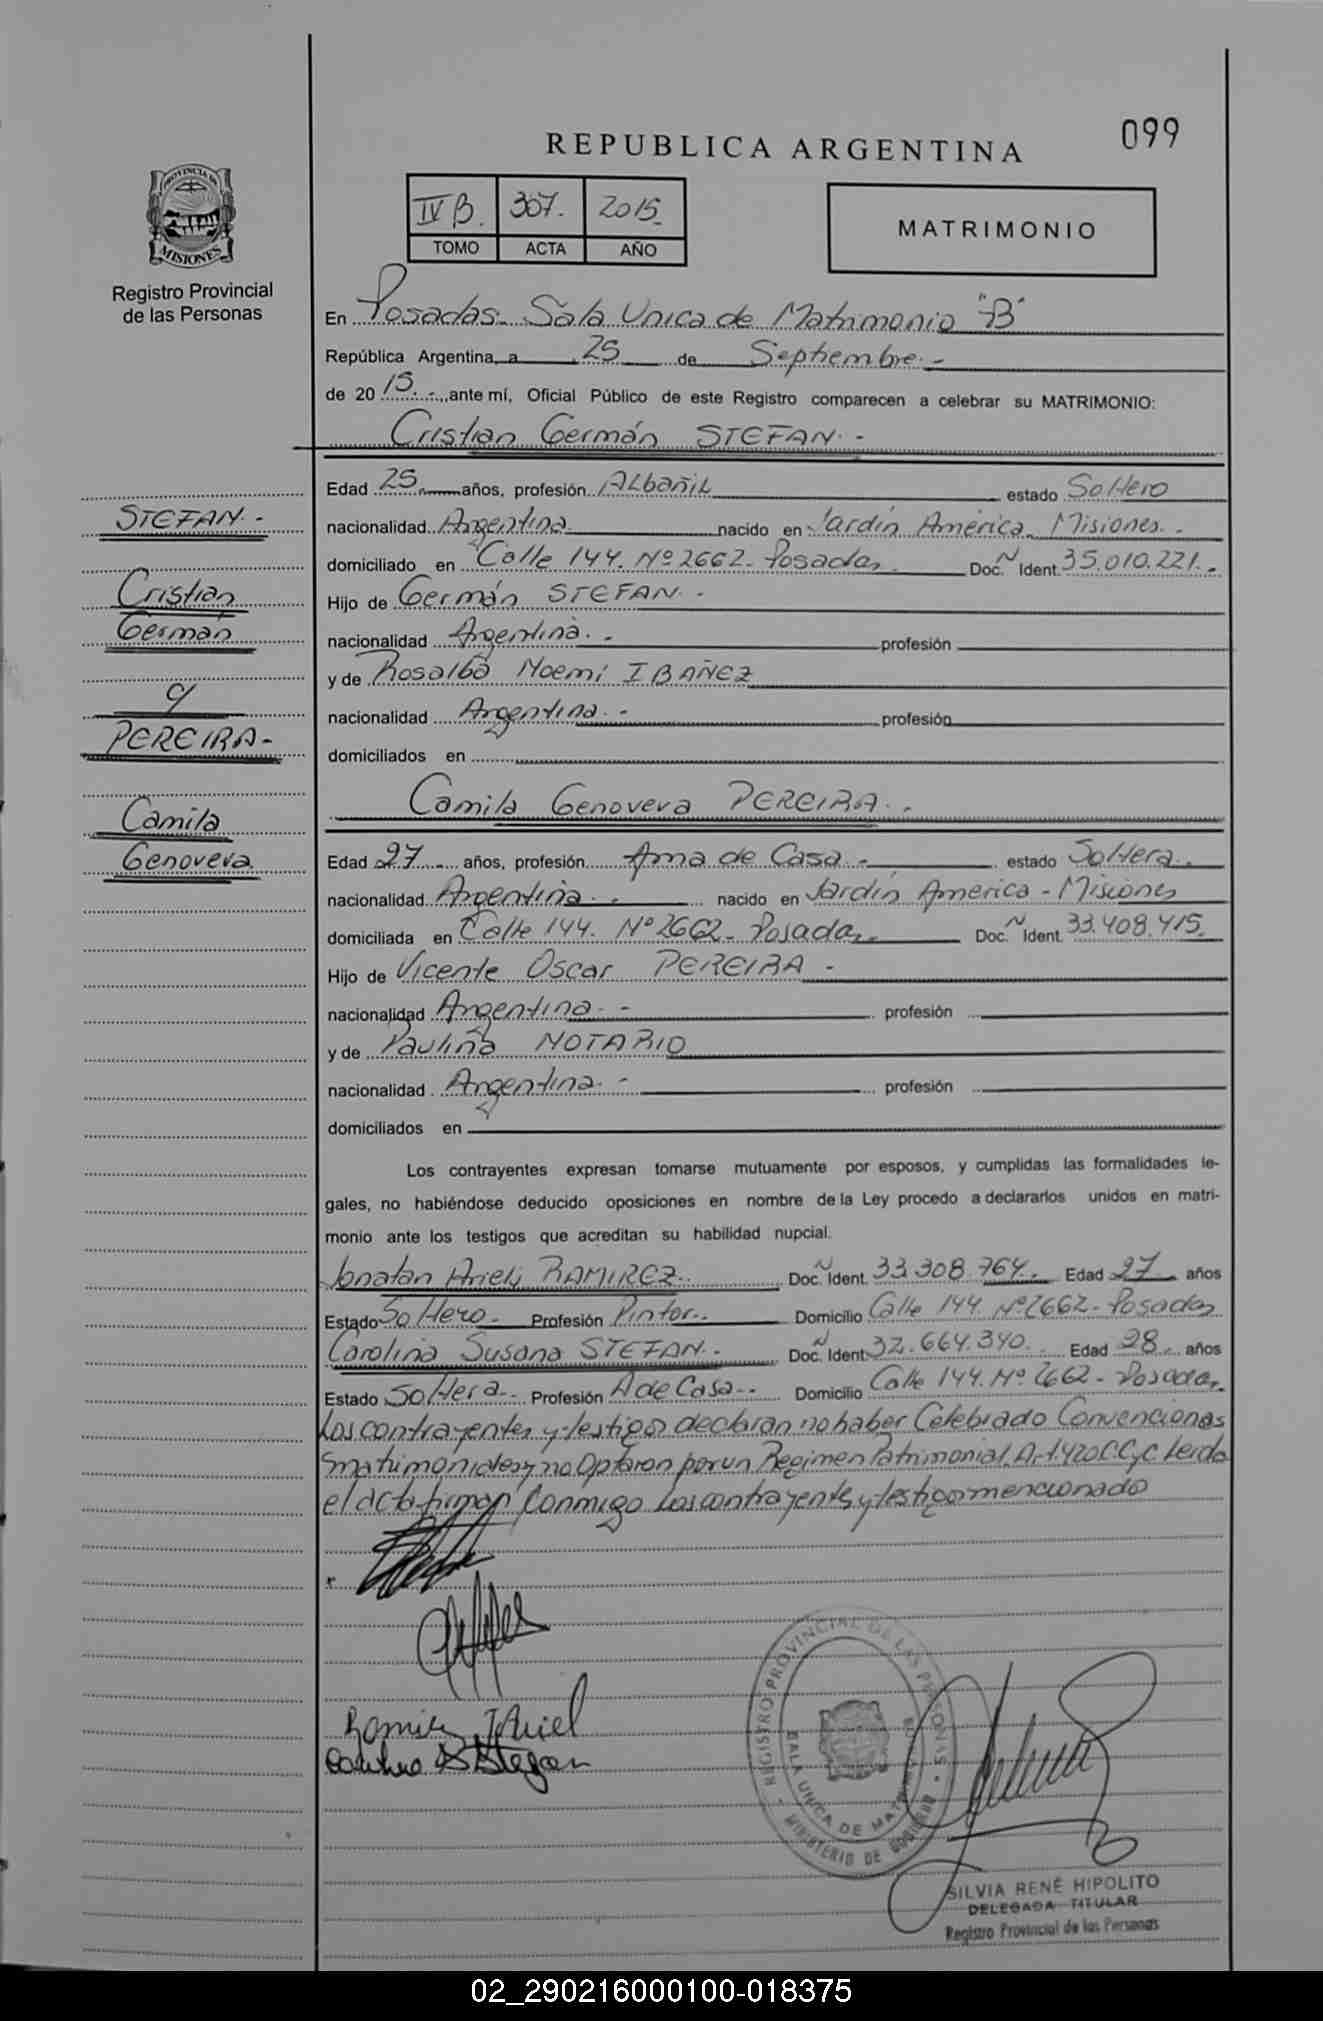 REPUBLICA ARGENTINA
099
IV B. 307. 2015.
TOMO ACTA AÑO
MATRIMONIO
PROVINCIA DE
MISIONES
Registro Provincial
de las Personas
En Posadas. Sala Unica de Matrimonio "B"
República Argentina, a 25 de Septiembre.-
de 20 15.- ante mí, Oficial Público de este Registro comparecen a celebrar su MATRIMONIO:
Cristian Germán STEFAN.-
Edad 25 años, profesión Albañil estado Soltero
nacionalidad Argentina nacido en Jardín América. Misiones.-
domiciliado en Calle 144. Nº 2662- Posadas. Doc. N Ident. 35.010.221.-
Hijo de Germán STEFAN.-
nacionalidad Argentina.- profesión
y de Rosalba Noemí IBAÑEZ
nacionalidad Argentina.- profesión
domiciliados en
STEFAN.-
Cristian
Germán
c/
PEREIRA-
Camila
Genoveva
Camila Genoveva PEREIRA.-
Edad 27 años, profesión Ama de Casa.- estado Soltera.
nacionalidad Argentina.- nacido en Jardín America - Misiones
domiciliada en Calle 144. Nº 2662- Posadas. Doc. N Ident. 33.408.415.
Hijo de Vicente Oscar PEREIRA-
nacionalidad Argentina.- profesión
y de Paulina NOTARIO
nacionalidad Argentina.- profesión
domiciliados en
Los contrayentes expresan tomarse mutuamente por esposos, y cumplidas las formalidades le-
gales, no habiéndose deducido oposiciones en nombre de la Ley procedo a declararlos unidos en matri-
monio ante los testigos que acreditan su habilidad nupcial.
Jonatan Ariel, RAMIREZ. Doc. N Ident. 33.308.764. Edad 27 años
Estado Soltero. Profesión Pintor. Domicilio Calle 144. Nº 2662- Posadas
Carolina Susana STEFAN.- Doc. N Ident. 32.664.340. Edad 28 años
Estado Soltera. Profesión A de Casa. Domicilio Calle 144. Nº 2662- Posadas.
Los contrayentes y testigos declaran no haber Celebrado Convenciones
matrimoniales y no Optaron por un Regimen Patrimonial. Art. 420 C.C y C. Leida
el acta firman Conmigo Los contrayentes y testigos mencionado
Ramirez J Ariel
REGISTRO PROVINCIAL DE LAS PERSONAS
SALA UNICA DE MATRIMONIO
MINISTERIO DE GOBIERNO
SILVIA RENÉ HIPOLITO
DELEGADA TITULAR
Registro Provincial de las Personas
02_290216000100-018375